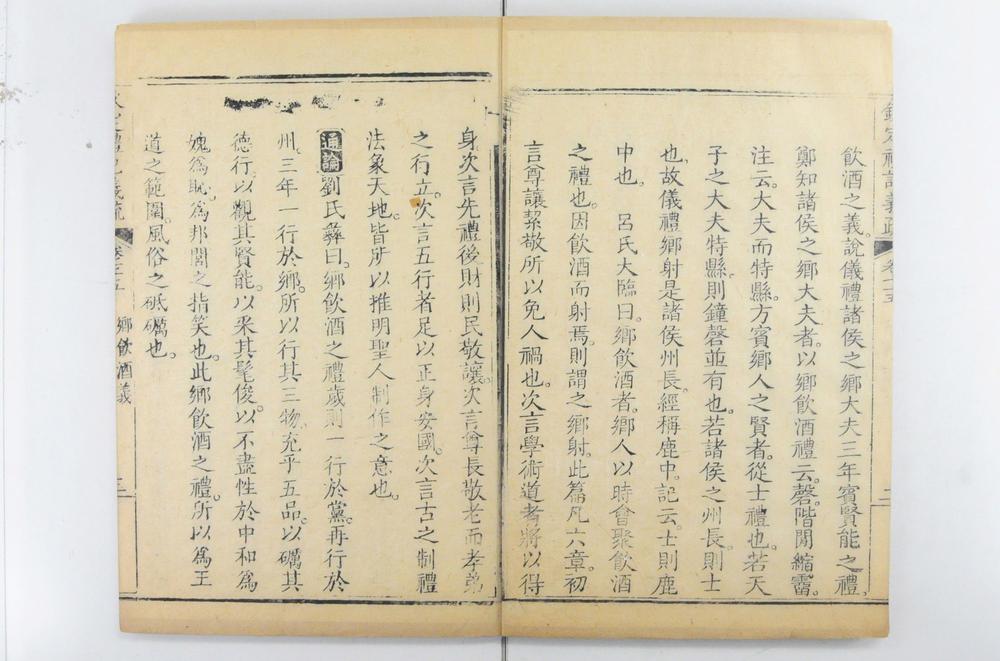 飲酒之義說儀禮諸侯之鄉大夫三年賓賢能之禮。
鄭知諸侯之鄉大夫者。以鄉飲酒禮云。磬。階間縮霤。
注云。大夫而特縣。方賓鄉人之賢者。從士禮也。若天
子之大夫特縣。則鐘磬並有也。若諸侯之州長。則士
也。故儀禮鄉射。是諸侯州長。經稱鹿中。記云。士則鹿
中也。 呂氏大臨曰。鄉飲酒者。鄉人以時會聚飲酒
之禮也。因飲酒而射焉。則謂之鄉射。此篇凡六章。初
言尊讓絜敬所以免人禍也。次言學術道者將以得
身。次言先禮後財則民敬讓。次言尊長敬老而孝弟
之行立。次言五行者足以正身安國。次言古之制禮
法象天地。皆所以推明聖人制作之意也。
通論劉氏彝曰。鄉飲酒之禮。歲則一行於黨。再行於
州。三年一行於鄉。所以行其三物。充乎五品。以礪其
德行。以觀其賢能。以采其髦俊。以不盡性於中和爲
媿爲恥。爲邦閭之指笑也。此鄉飲酒之禮。所以爲王
道之範圍。風俗之砥礪也。
鄉飲酒義